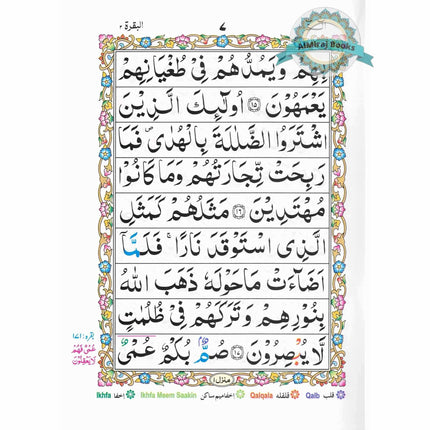 البقرة ٢
٧
AlMiraj Books
بِهِمْ وَيَمُدُّهُمْ فِيْ طُغْيَانِهِمْ
يَعْمَهُوْنَ ۝١٥ اُولٰٓئِكَ الَّذِيْنَ
اشْتَرَوُا الضَّلٰلَةَ بِالْهُدٰى ۪ فَمَا
رَبِحَتْ تِّجَارَتُهُمْ وَمَا كَانُوْا
مُهْتَدِيْنَ ۝١٦ مَثَلُهُمْ كَمَثَلِ
الَّذِى اسْتَوْقَدَ نَارًا ۚ فَلَمَّآ
اَضَآءَتْ مَا حَوْلَهٗ ذَهَبَ اللّٰهُ
بِنُوْرِهِمْ وَتَرَكَهُمْ فِيْ ظُلُمٰتٍ
لَّا يُبْصِرُوْنَ ۝١٧ صُمٌّۢ بُكْمٌ عُمْيٌ
بقره: ١٧١
عُمْيٌ فَهُمْ
لَا يَعْقِلُوْنَ
منزل ١
Ikhfa اخفا Ikhfa Meem Saakin اخفا میم ساکن Qalqala قلقله Qalb قلب